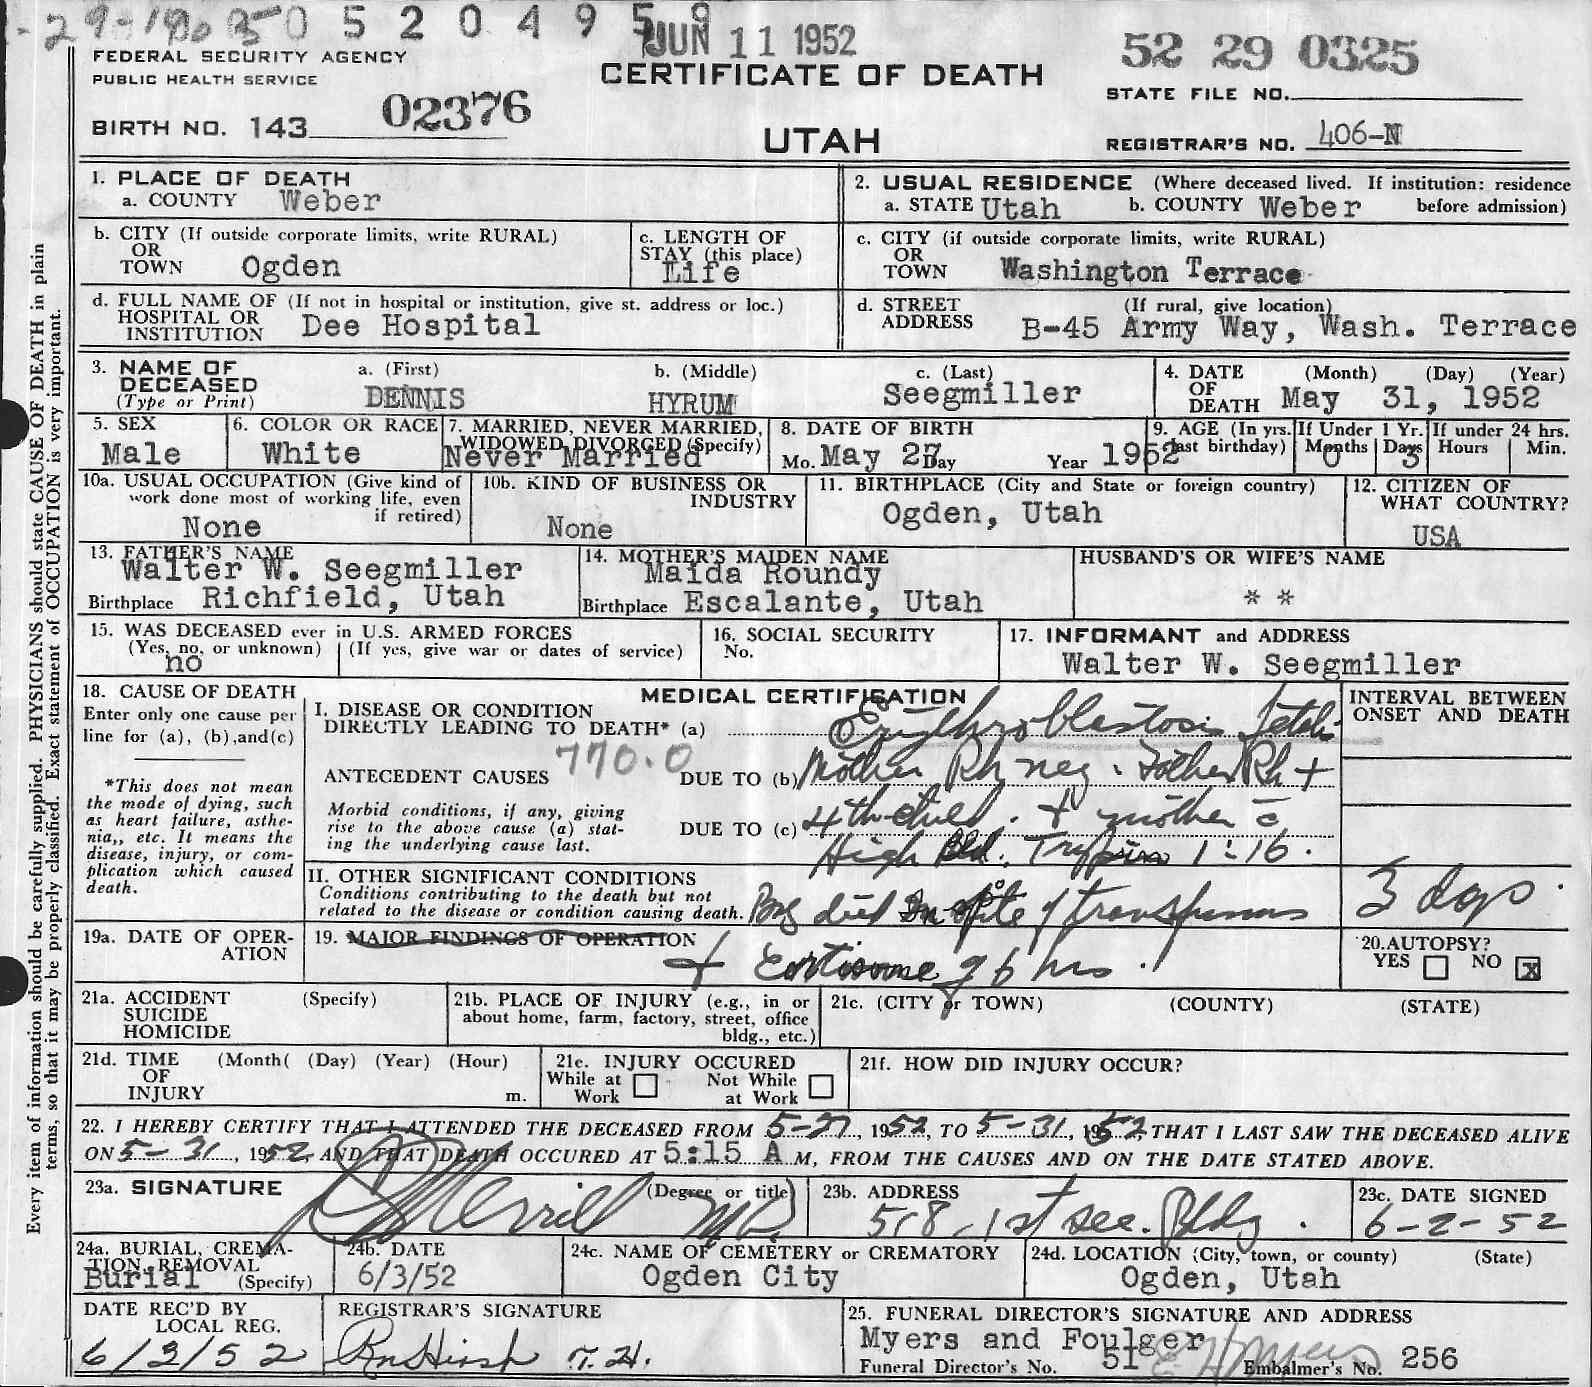 0 5 2 0 4 9 5
JUN 11 1952
52 29 0325
FEDERAL SECURITY AGENCY
PUBLIC HEALTH SERVICE
CERTIFICATE OF DEATH
STATE FILE NO.
BIRTH NO. 143 02376
UTAH
REGISTRAR'S NO. 406-N
Every item of information should be carefully supplied. PHYSICIANS should state CAUSE OF DEATH in plain
terms, so that it may be properly classified. Exact statement of OCCUPATION is very important.
1. PLACE OF DEATH
a. COUNTY Weber
2. USUAL RESIDENCE (Where deceased lived. If institution: residence
a. STATE Utah b. COUNTY Weber before admission)
b. CITY (If outside corporate limits, write RURAL)
OR
TOWN Ogden
c. LENGTH OF
STAY (this place)
Life
c. CITY (if outside corporate limits, write RURAL)
OR
TOWN Washington Terrace
d. FULL NAME OF (If not in hospital or institution, give st. address or loc.)
HOSPITAL OR
INSTITUTION Dee Hospital
d. STREET (If rural, give location)
ADDRESS B-45 Army Way, Wash. Terrace
3. NAME OF
DECEASED
(Type or Print)
a. (First)
DENNIS
b. (Middle)
HYRUM
c. (Last)
Seegmiller
4. DATE (Month) (Day) (Year)
OF
DEATH May 31, 1952
5. SEX
Male
6. COLOR OR RACE
White
7. MARRIED, NEVER MARRIED,
WIDOWED DIVORCED (Specify)
Never Married
8. DATE OF BIRTH
Mo. May 27 Day Year 1952
9. AGE (In yrs. last birthday)
If Under 1 Yr.
Months 0 Days 3
If under 24 hrs.
Hours Min.
10a. USUAL OCCUPATION (Give kind of
work done most of working life, even
if retired)
None
10b. KIND OF BUSINESS OR
INDUSTRY
None
11. BIRTHPLACE (City and State or foreign country)
Ogden, Utah
12. CITIZEN OF
WHAT COUNTRY?
USA
13. FATHER'S NAME
Walter W. Seegmiller
Birthplace Richfield, Utah
14. MOTHER'S MAIDEN NAME
Maida Roundy
Birthplace Escalante, Utah
HUSBAND'S OR WIFE'S NAME
* *
15. WAS DECEASED ever in U.S. ARMED FORCES
(Yes, no, or unknown) (If yes, give war or dates of service)
no
16. SOCIAL SECURITY
No.
17. INFORMANT and ADDRESS
Walter W. Seegmiller
18. CAUSE OF DEATH
Enter only one cause per
line for (a), (b), and (c)
*This does not mean
the mode of dying, such
as heart failure, asthe-
nia,, etc. It means the
disease, injury, or com-
plication which caused
death.
MEDICAL CERTIFICATION
INTERVAL BETWEEN
ONSET AND DEATH
I. DISEASE OR CONDITION
DIRECTLY LEADING TO DEATH* (a) Erythroblestosis Fetalis
770.0
ANTECEDENT CAUSES DUE TO (b) Mother Rh neg. Father Rh +
Morbid conditions, if any, giving
rise to the above cause (a) stat-
ing the underlying cause last.
DUE TO (c) 4th child. + mother c̄
High Bld. Trypsin 1:16.
II. OTHER SIGNIFICANT CONDITIONS
Conditions contributing to the death but not
related to the disease or condition causing death. Boy died In spite of transfusions
3 days.
19a. DATE OF OPER-
ATION
19. MAJOR FINDINGS OF OPERATION
+ Cortisone q 6 hrs.
20. AUTOPSY?
YES NO X
21a. ACCIDENT (Specify)
SUICIDE
HOMICIDE
21b. PLACE OF INJURY (e.g., in or
about home, farm, factory, street, office
bldg., etc.)
21c. (CITY or TOWN) (COUNTY) (STATE)
21d. TIME (Month( (Day) (Year) (Hour)
OF
INJURY m.
21e. INJURY OCCURED
While at Work Not While at Work
21f. HOW DID INJURY OCCUR?
22. I HEREBY CERTIFY THAT I ATTENDED THE DECEASED FROM 5-27, 1952, TO 5-31, 1952, THAT I LAST SAW THE DECEASED ALIVE
ON 5-31, 1952, AND THAT DEATH OCCURED AT 5:15 A M, FROM THE CAUSES AND ON THE DATE STATED ABOVE.
23a. SIGNATURE (Degree or title)
Merrill M.D.
23b. ADDRESS
518 1st Sec. Bldg.
23c. DATE SIGNED
6-2-52
24a. BURIAL, CREMA-
TION, REMOVAL
Burial (Specify)
24b. DATE
6/3/52
24c. NAME OF CEMETERY or CREMATORY
Ogden City
24d. LOCATION (City, town, or county) (State)
Ogden, Utah
DATE REC'D BY
LOCAL REG.
6/3/52
REGISTRAR'S SIGNATURE
25. FUNERAL DIRECTOR'S SIGNATURE AND ADDRESS
Myers and Foulger
Funeral Director's No. 51 Embalmer's No. 256